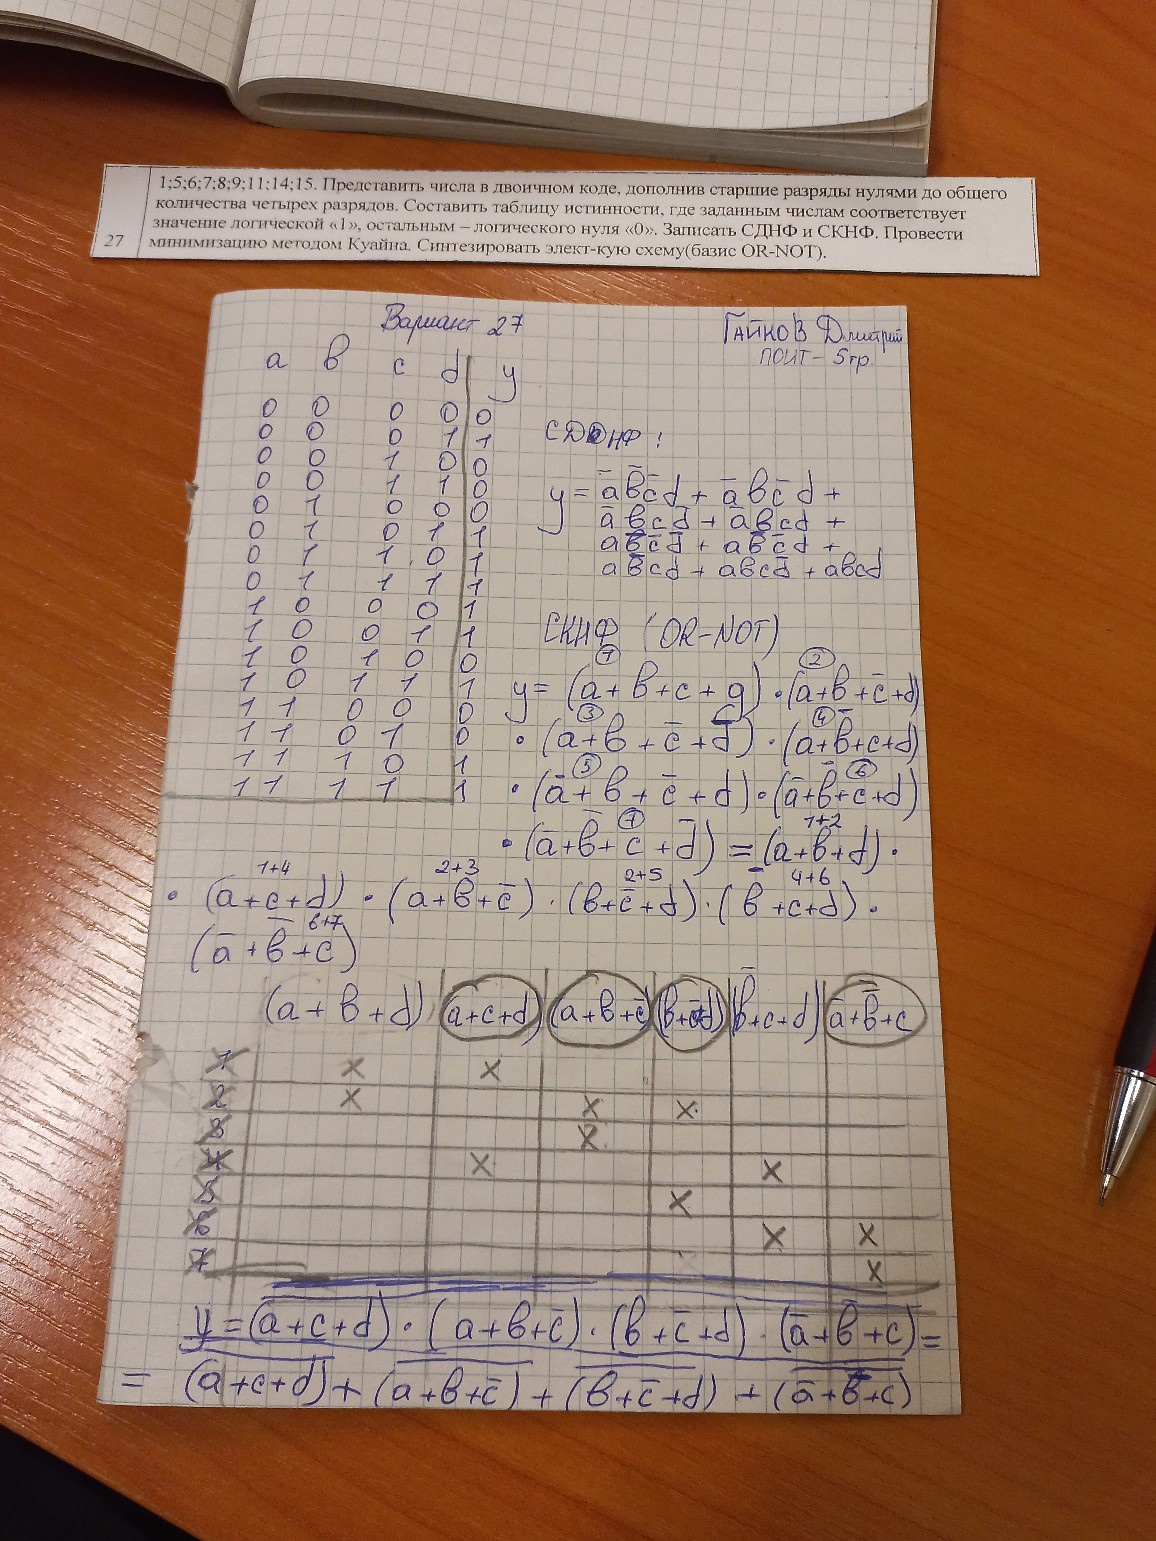 1;5;6;7;8;9;11;14;15. Представить числа в двоичном коде, дополнив старшие разряды нулями до общего
количества четырех разрядов. Составить таблицу истинности, где заданным числам соответствует
значение логической «1», остальным – логического нуля «0». Записать СДНФ и СКНФ. Провести
27 минимизацию методом Куайна. Синтезировать элект-кую схему(базис OR-NOT).
Вариант 27
ГАЙКОВ Дмитрий
ПОИТ - 5гр.
a в c d y
0 0 0 0 0
0 0 0 1 1
0 0 1 0 0
0 0 1 1 0
0 1 0 0 0
0 1 0 1 1
0 1 1 0 1
0 1 1 1 1
1 0 0 0 1
1 0 0 1 1
1 0 1 0 0
1 0 1 1 1
1 1 0 0 0
1 1 0 1 0
1 1 1 0 1
1 1 1 1 1
СДНФ:
y = a̅ в̅ c̅ d + a̅ в c̅ d +
a̅ в c d̅ + a̅ в c d +
a в̅ c̅ d̅ + a в̅ c̅ d +
a в̅ c d + a в c d̅ + a в c d
СКНФ (OR-NOT)
1 2
y = (a + в + c + d) · (a + в + c̅ + d)
3 4
· (a + в + c̅ + d̅) · (a + в̅ + c + d)
5 6
· (a̅ + в + c̅ + d) · (a̅ + в̅ + c + d)
7 1+2
· (a̅ + в̅ + c + d̅) = (a + в + d) ·
1+4 2+3 2+5 4+6
· (a + c + d) · (a + в + c̅) · (в + c̅ + d) · (в̅ + c + d) ·
6+7
(a̅ + в̅ + c)
(a + в + d) (a + c + d) (a + в + c̅) (в + c̅ + d) (в̅ + c + d) a̅ + в̅ + c
1 x x
2 x x x
3 x
4 x x
5 x
6 x x
7 x
y = (a + c + d) · (a + в + c̅) · (в + c̅ + d) · (a̅ + в̅ + c) =
= (a + c + d) + (a + в + c̅) + (в + c̅ + d) + (a̅ + в̅ + c)